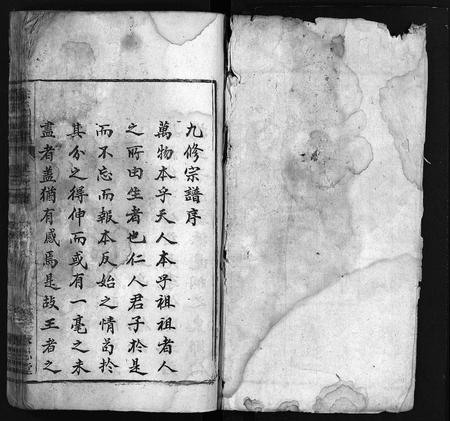 九修宗譜序
萬物本乎天人本乎祖祖者人
之所由生者也仁人君子於是
而不忘而報本反始之情苟於
其分之得伸而或有一毫之未
盡者蓋猶有感焉是故王者之